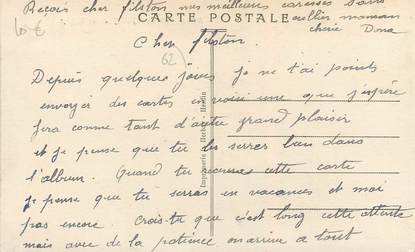 Reçois cher filston mes meilleures caresses sans
oublier maman
CARTE POSTALE
chérie Dona
10 €
Cher filston.
62
Depuis quelques jours je ne t'ai point
envoyer des cartes en voici une que j'espère
fera comme tant d'autre grand plaisir
et je pense que tu les serres bien dans
l'album. Quand tu recevras cette carte
je pense que tu serras en vacances et moi
pas encore. Crois-tu que c'est long cette attente
mais avec de la patience on arrive a tout
Imprimerie Herbet - Hesdin